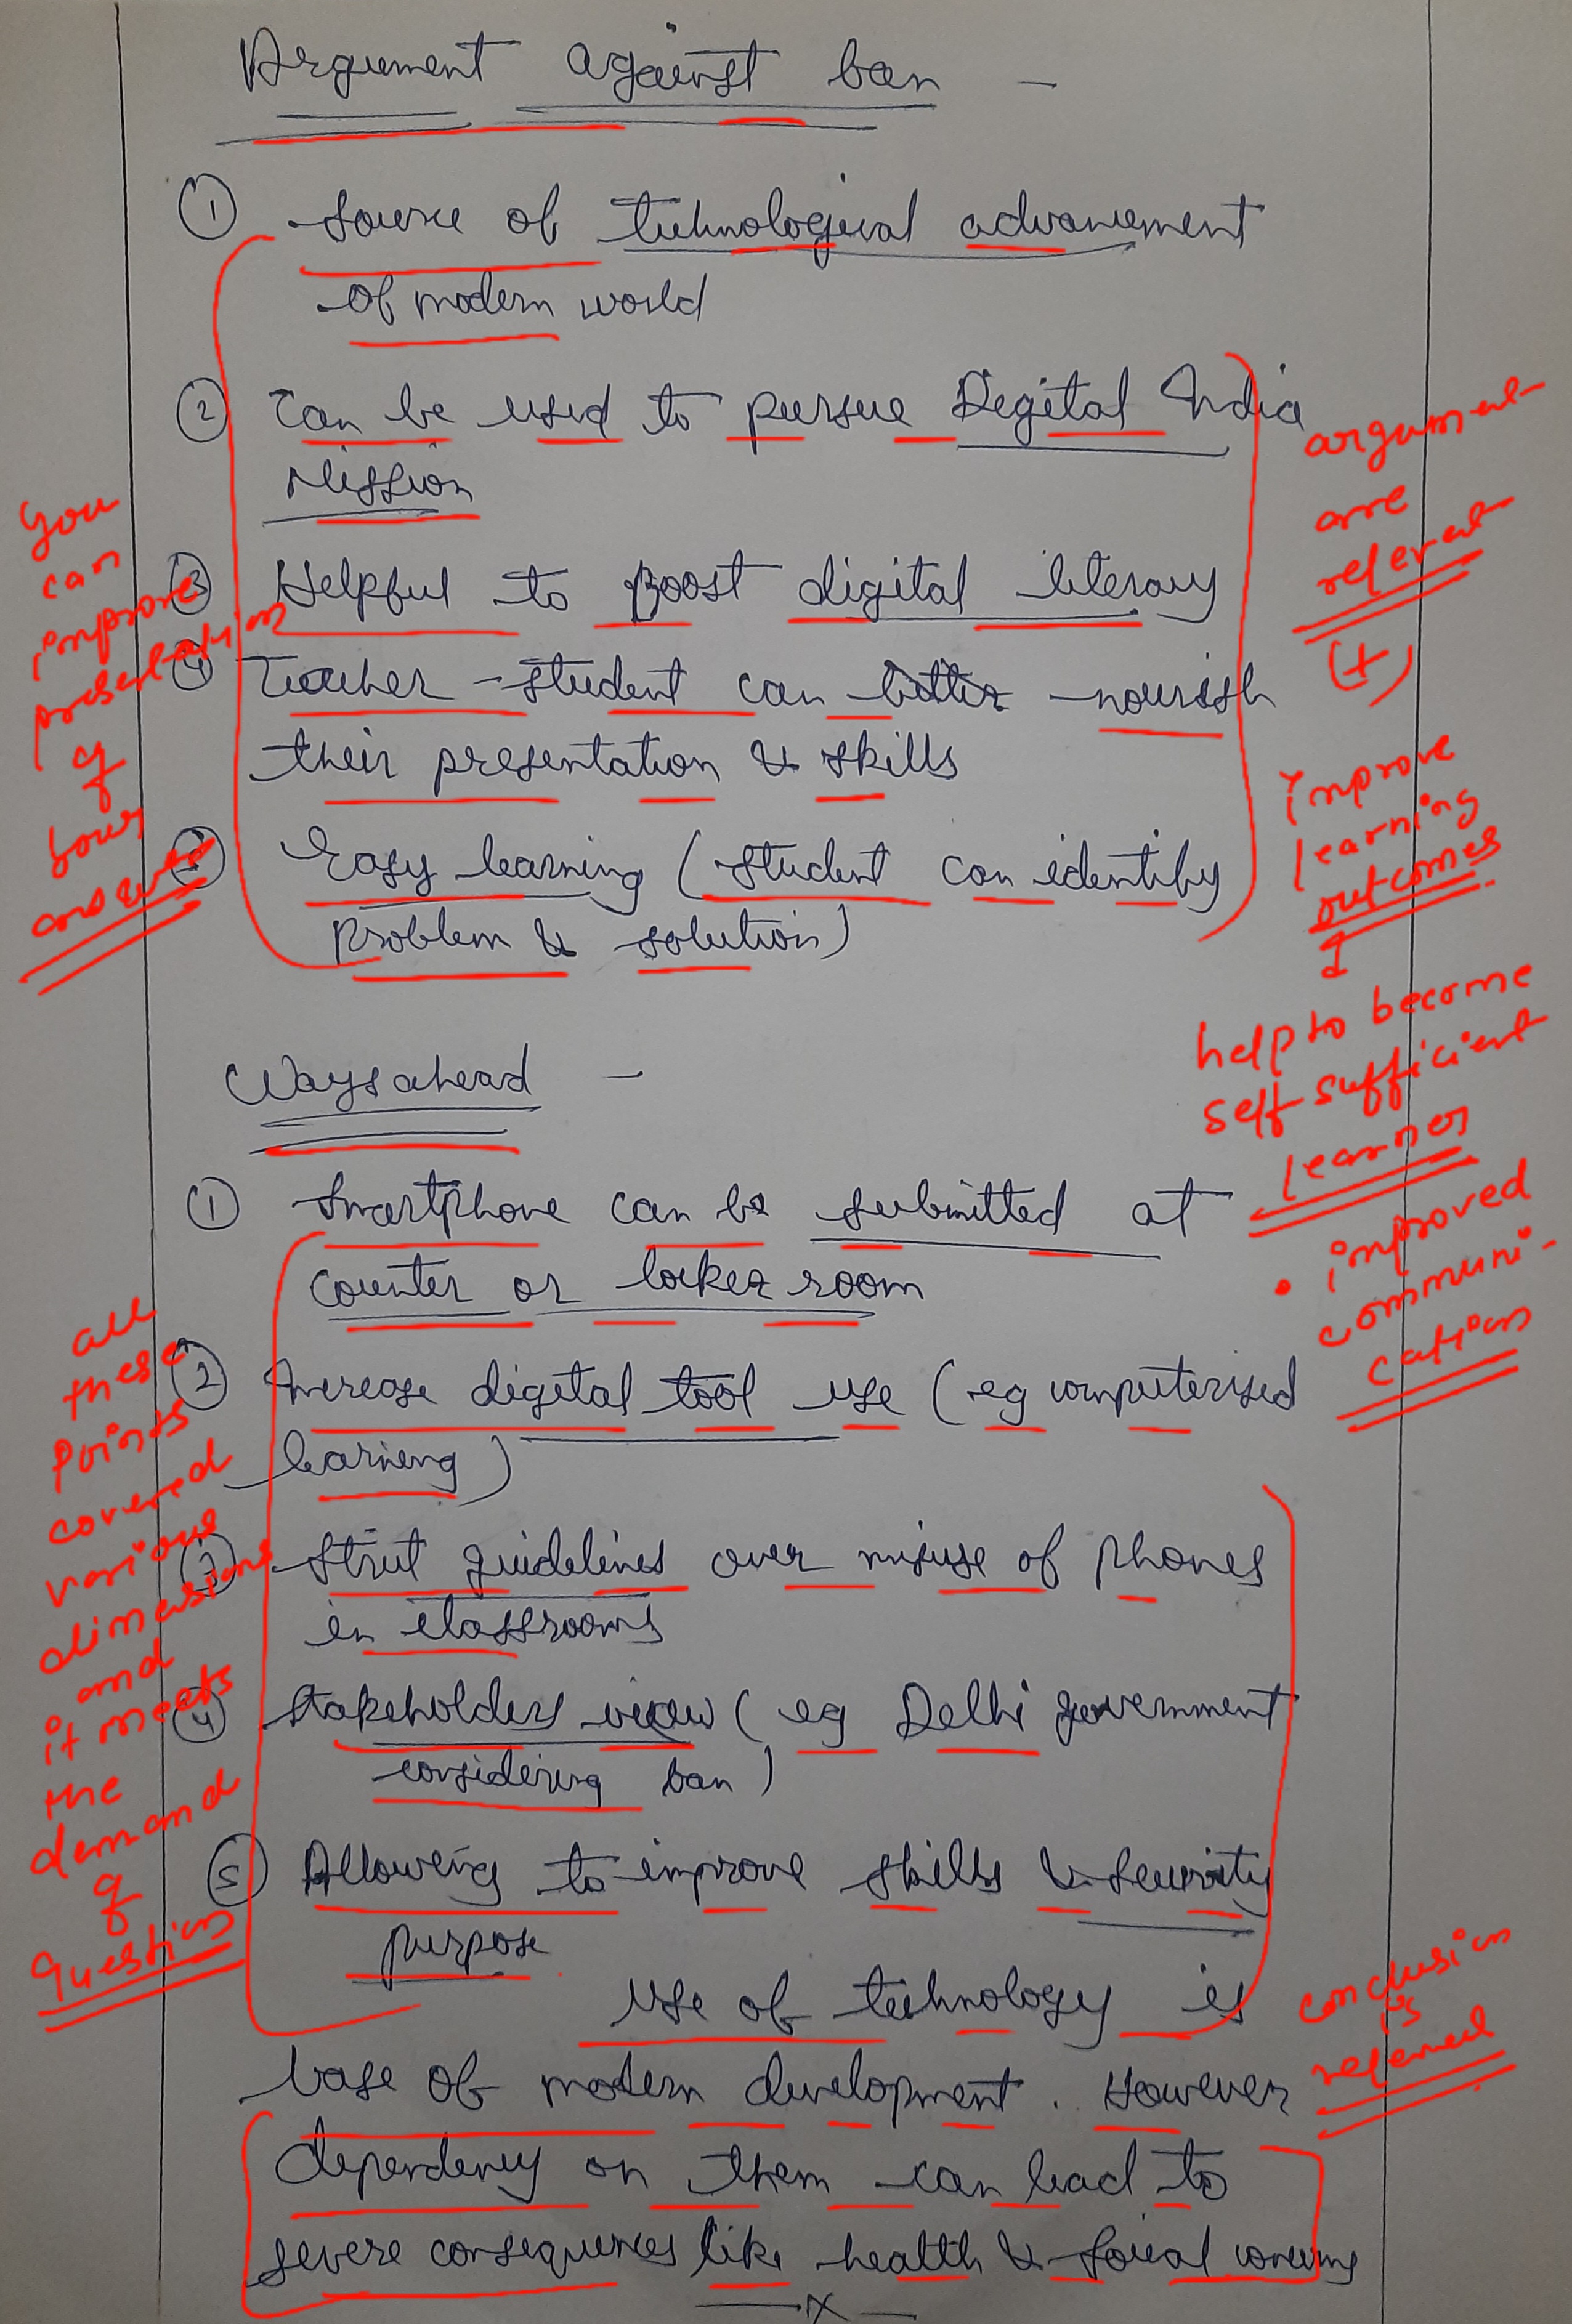 Argument against ban -
① Source of technological advancement
of modern world
② Can be used to pursue Digital India
Mission
③ Helpful to Boost digital literacy
④ Teacher - student can better nourish
their presentation & skills
⑤ Easy learning (student can identify
problem & solution)
you
can
improve
presentation
of
your
answer
argument
are
referent
(+)
improve
learning
outcomes
↓
help to become
self sufficient
learner
• improved
communi-
cation
Ways ahead -
① Smartphone can be submitted at
counter or locker room
② Increase digital tool use (eg computerised
learning)
③ Strict guidelines over misuse of phones
in classrooms
④ Stakeholders view (eg Delhi government
considering ban)
⑤ Allowing to improve skills & security
purpose
all
these
points
covered
various
dimensions
and
it meets
the
demand
of
question
Use of technology is
base of modern development. However
dependency on them can lead to
severe consequences like health & social concerns
—x—
conclusion
is
referred